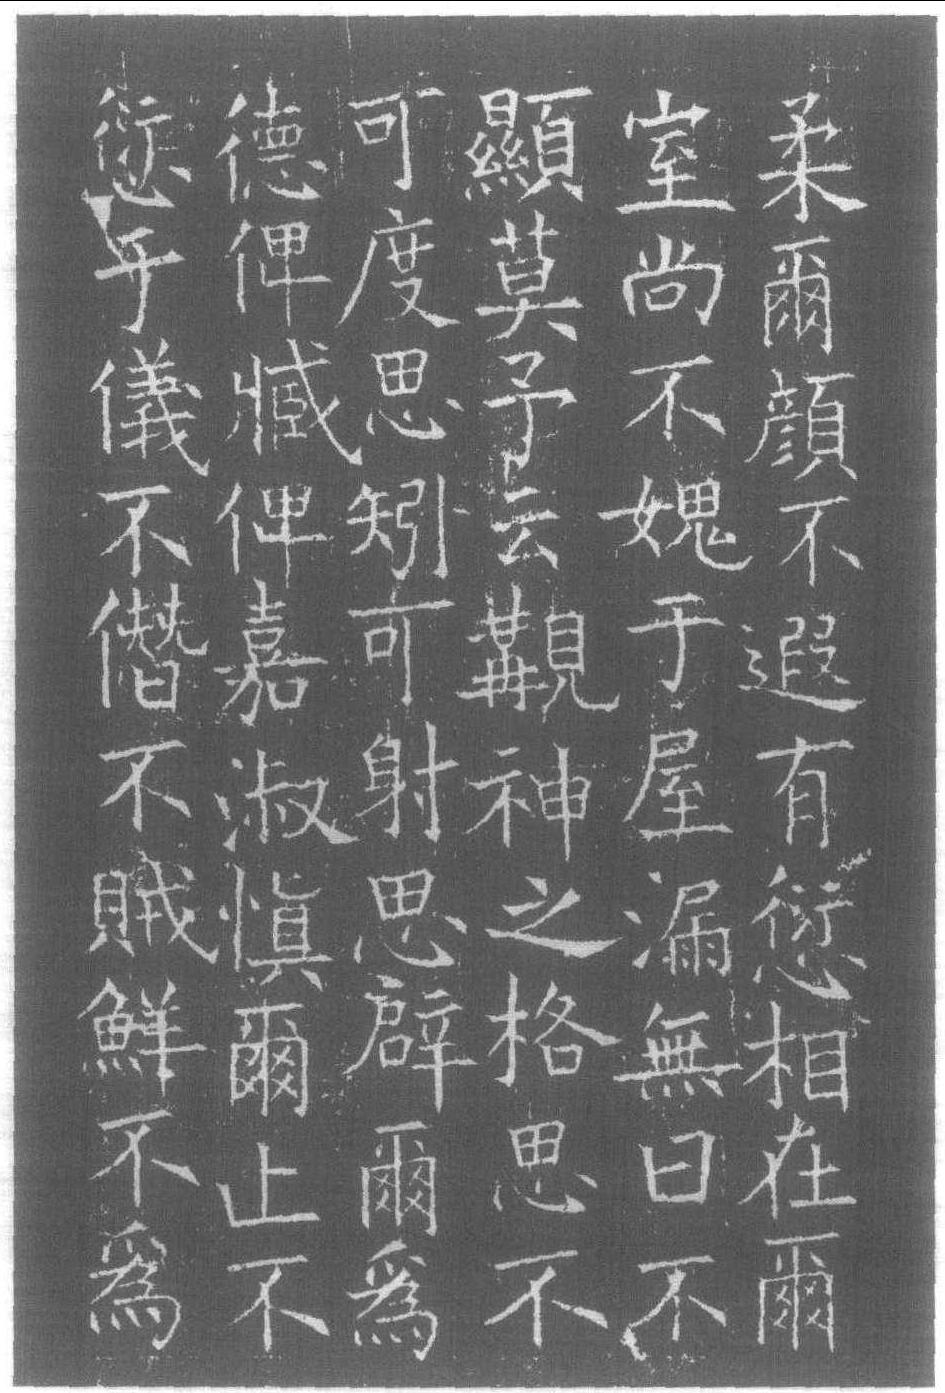 柔爾顏不遐有愆相在爾
室尚不媿于屋漏無曰不
顯莫予云覯神之格思不
可度思矧可射思辟爾爲
德俾臧俾嘉淑慎爾止不
愆于儀不僭不賊鮮不爲